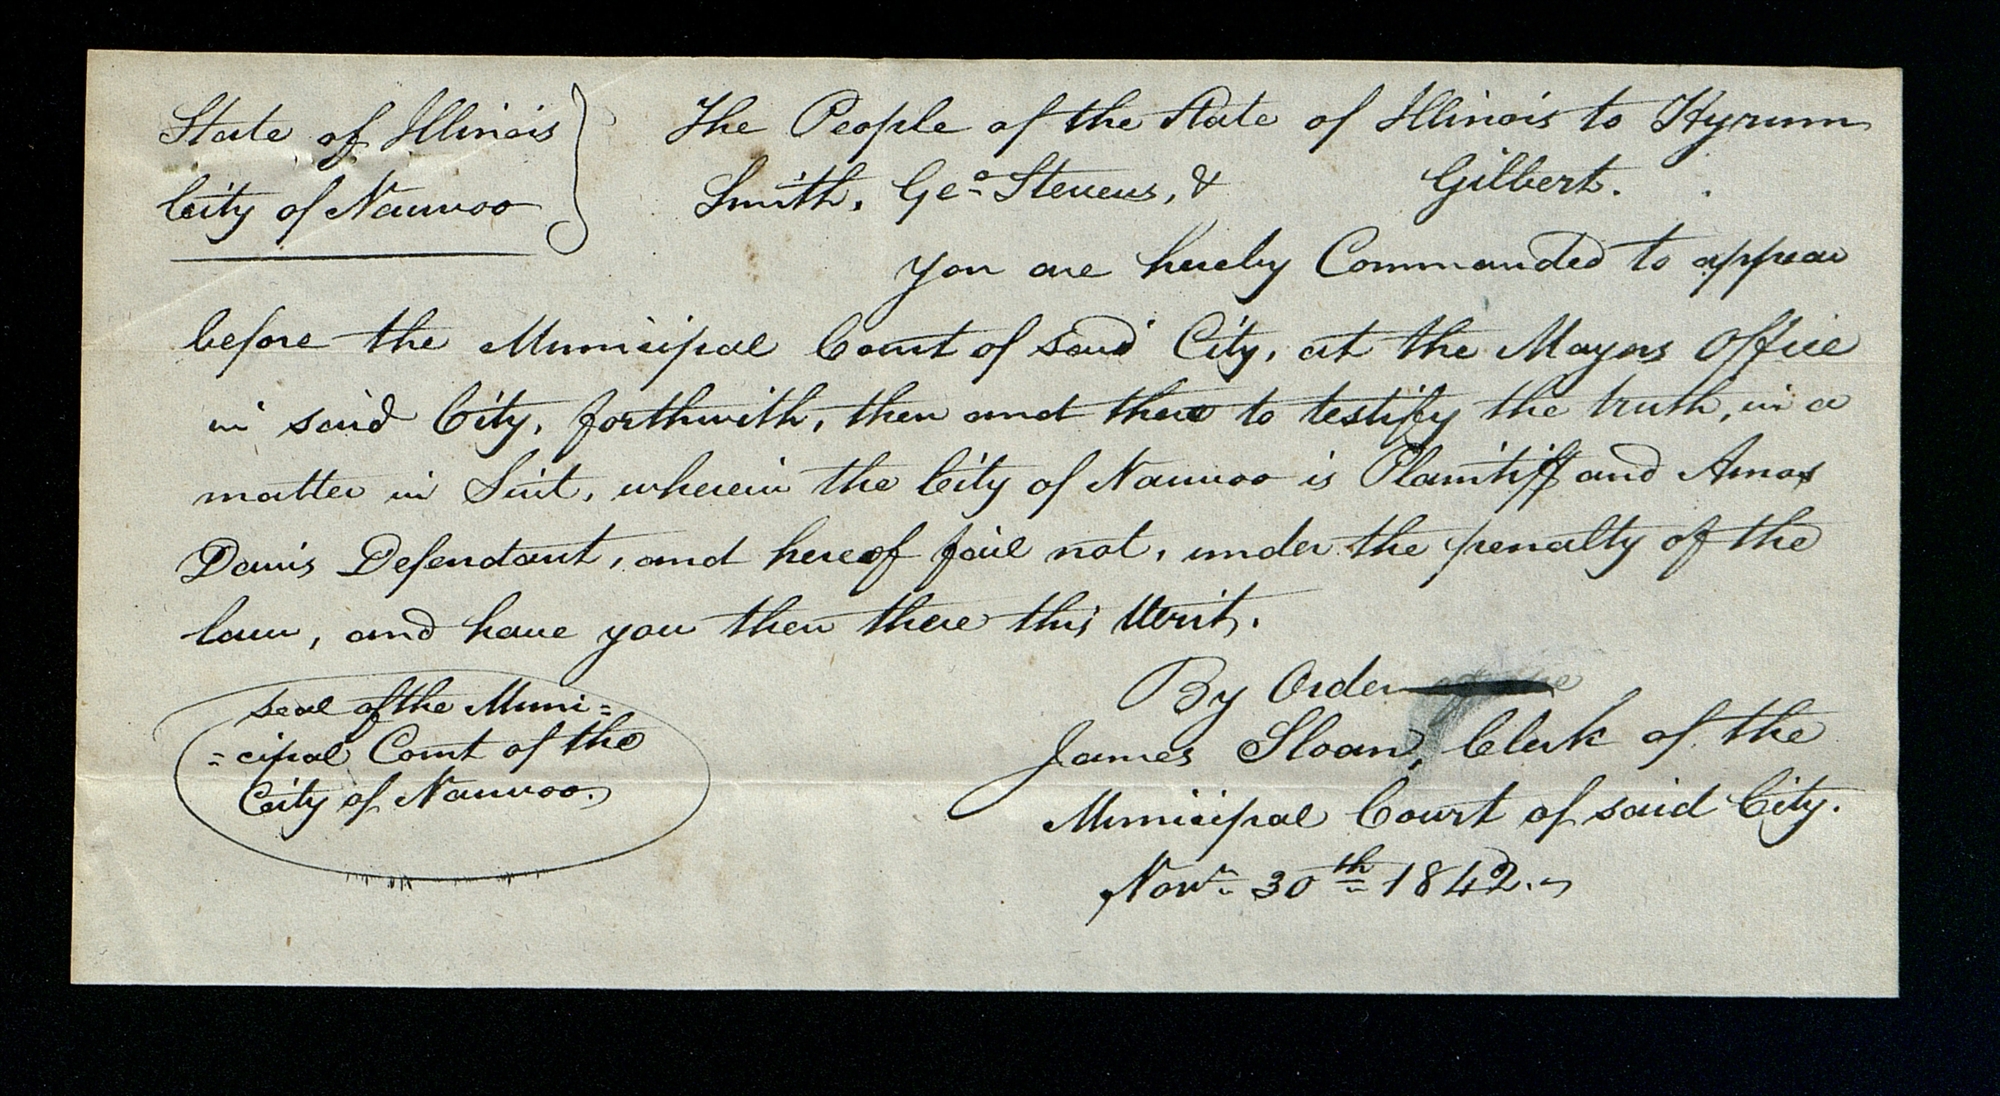 State of Illinois }
City of Nauvoo
The People of the State of Illinois to Hyrum
Smith, Geo. Stevens, & Gilbert.
You are hereby Commanded to appear
before the Municipal Court of said City, at the Mayors Office
in said City, forthwith, then and there to testify the truth, in a
matter in Suit, wherein the City of Nauvoo is Plaintiff and Amos
Davis Defendant, and hereof fail not, under the penalty of the
law, and have you then there this Writ.
By Order
James Sloan, Clerk of the
Municipal Court of said City.
Novr. 30th 1842.
seal of the Muni=
=cipal Court of the
City of Nauvoo.